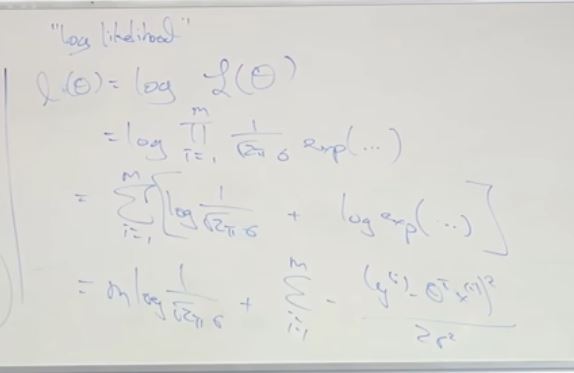 "log likelihood"
ℓ(θ) = log ℒ(θ)
= log ∏_{i=1}^{m} 1/(√2π σ) exp(...)
= ∑_{i=1}^{m} [log 1/(√2π σ) + log exp(...)]
= m log 1/(√2π σ) + ∑_{i=1}^{m} - (y^{(i)} - θ^T x^{(i)})²/2σ²